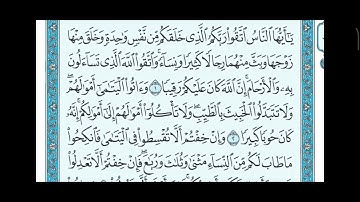 يَٰٓأَيُّهَا ٱلنَّاسُ ٱتَّقُوا۟ رَبَّكُمُ ٱلَّذِى خَلَقَكُم مِّن نَّفْسٍ وَٰحِدَةٍ وَخَلَقَ مِنْهَا
زَوْجَهَا وَبَثَّ مِنْهُمَا رِجَالًا كَثِيرًا وَنِسَآءً وَٱتَّقُوا۟ ٱللَّهَ ٱلَّذِى تَسَآءَلُونَ
بِهِۦ وَٱلْأَرْحَامَ إِنَّ ٱللَّهَ كَانَ عَلَيْكُمْ رَقِيبًا ١ وَءَاتُوا۟ ٱلْيَتَٰمَىٰٓ أَمْوَٰلَهُمْ
وَلَا تَتَبَدَّلُوا۟ ٱلْخَبِيثَ بِٱلطَّيِّبِ وَلَا تَأْكُلُوٓا۟ أَمْوَٰلَهُمْ إِلَىٰٓ أَمْوَٰلِكُمْ إِنَّهُۥ
كَانَ حُوبًا كَبِيرًا ٢ وَإِنْ خِفْتُمْ أَلَّا تُقْسِطُوا۟ فِى ٱلْيَتَٰمَىٰ فَٱنكِحُوا۟
مَا طَابَ لَكُم مِّنَ ٱلنِّسَآءِ مَثْنَىٰ وَثُلَٰثَ وَرُبَٰعَ فَإِنْ خِفْتُمْ أَلَّا تَعْدِلُوا۟